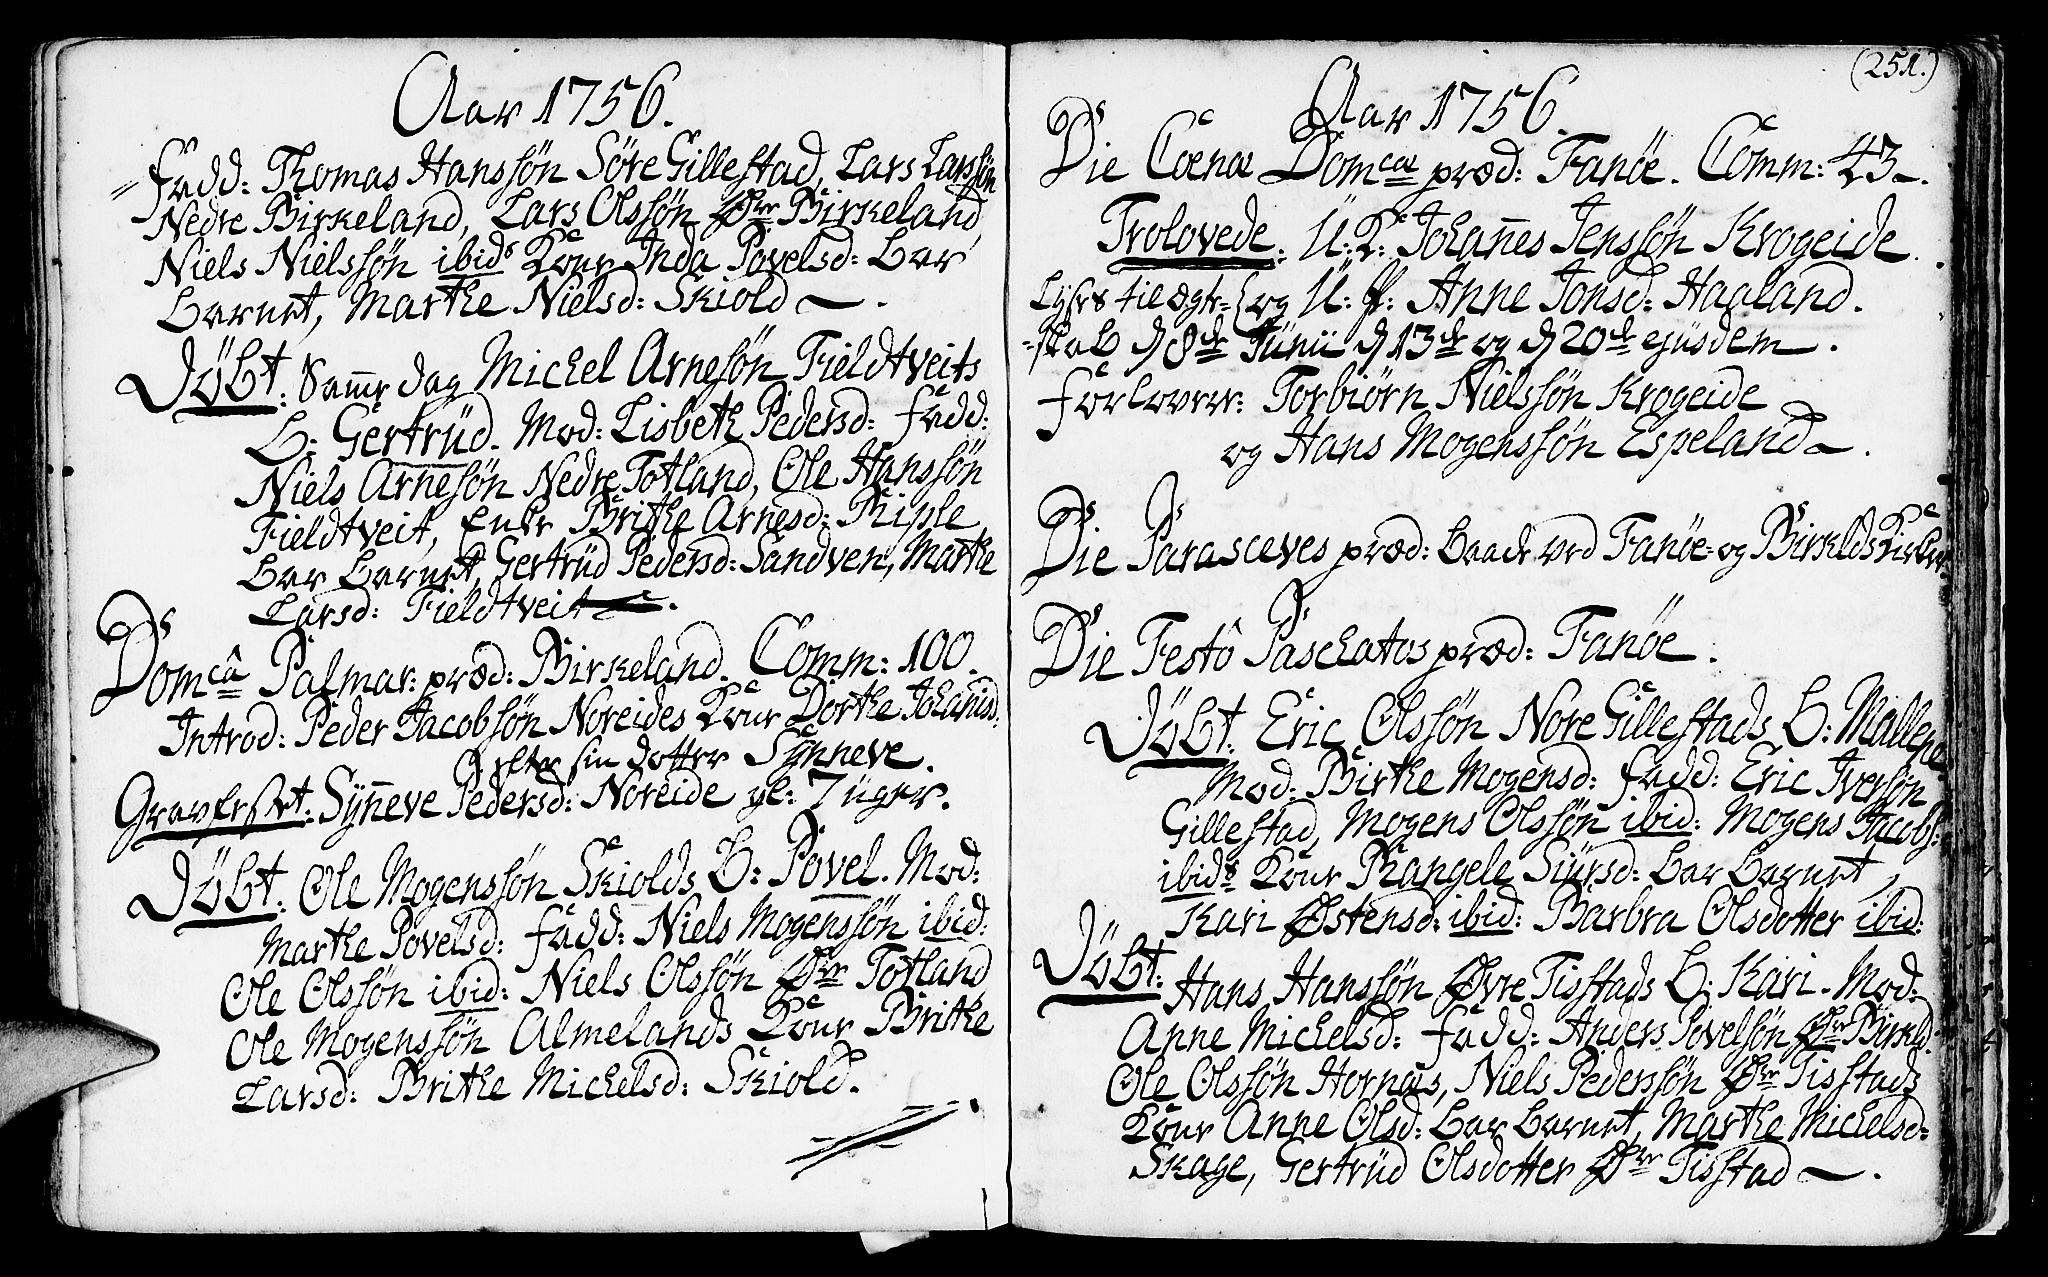 Aar 1756.
Fadd: Thomas Hanssön Söre Gillestad, Lars Larssön
Nedre Birkeland, Lars Olssön Ør Birkeland,
Niels Nielssön ibids Kone Inda Povelsd: bar
barnet, Marthe Nielsd: Skiold.
Döbt: Samme dag Michel Arnesön Fieldtveits
B: Gertrüd. Mod: Lisbeth Pedersd: Fadd:
Niels Arnesön Nedre Totland, Ole Hanssön
Fieldtveit, Enke Brithe Arnesd: Riple
bar barnet, Gertrüd Pedersd: Sandven, Marthe
Larsd: Fieldtveit.
Domcâ Palmar: præd: Birkeland. Comm: 100.
Introd: Peder Jacobsön Noreides Kone Dorthe Johanisd:
efter sin dotter Synneve.
Gravfæstet: Syn̄eve Pedersd: Noreide gl: 7 üger.
Döbt: Ole Mogenssön Skiolds B: Povel. Mod:
Marthe Povelsd: Fadd: Niels Mogenssön ibid:
Ole Olssön ibid: Niels Olssön Ør Totland
Ole Mogenssön Almelands Kone Brithe
Larsd: Brithe Michelsd: Skiold.
(251.)
Aar 1756.
Die Coenæ Domcæ præd: Fanöe. Comm: 43.
Trolovede: U: K: Johan̄es Jenssön Krogeide
Lyses til Ægte= og U: P: Anne Jonsd: Hagland.
=skab d 8de Junii d 13de og d 20de ejusdem.
Forlovere: Torbiörn Nielssön Krogeide
og Hans Mogenssön Espeland.
Die Parasceves præd: baade ved Fanöe= og Birklds Kirker.
Die Festô Paschatos præd: Fanöe.
Döbt: Eric Olssön Nore Gillestads B: Mallene
Mod: Birthe Mogensd: Fadd: Eric Iversön
Gillestad, Mogens Olssön ibid: Mogens Jacobs:
ibids Kone Rangele Siürsd: bar barnet,
Kari Østensd: ibid: Barbra Olsdotter ibid:
Döbt: Hans Hanssön Øvre Tisstads B: Kari. Mod:
Anne Michelsd: Fadd: Anders Povelsön Ør Birkld:
Ole Olssön Hornæs, Niels Pederssön Ør Tisstads
Kone Anne Olsd: bar barnet, Marthe Michelsd:
Skage, Gertrüd Olsdotter Ør Tisstad.